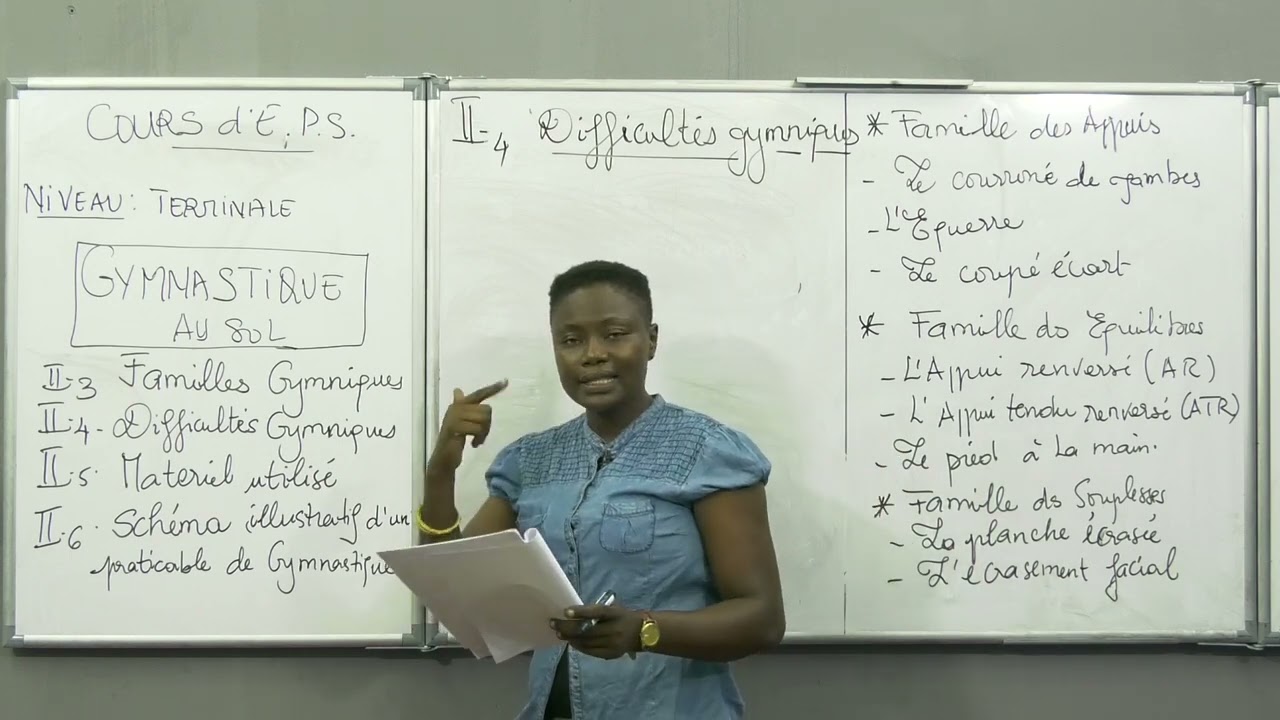 COURS d'E.P.S.
NIVEAU : TERMINALE
GYMNASTIQUE
AU SOL
II-3 Familles Gymniques
II-4- Difficultés Gymniques
II-5 Materiel utilisé
II-6 Schéma illustratif d'un
praticable de Gymnastique
II-4 Difficultés gymniques
* Famille des Appuis
- Le couronné de jambes
- L'Equerre
- Le coupé écart
* Famille ds Equilibres
- L'Appui renversé (AR)
- L'Appui tendu renversé (ATR)
- Le pied à la main.
* Famille ds Souplesses
- La planche écrasée
- L'écrasement facial